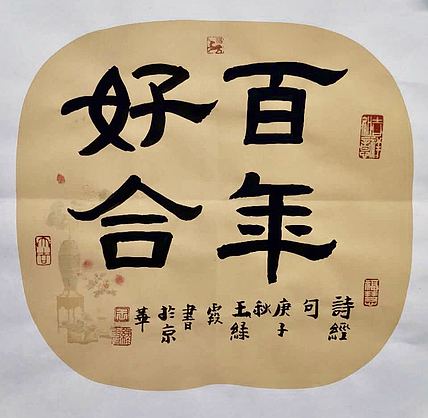 百年
好合
詩經
句
庚子
秋
王緑
霞
書
於京
華